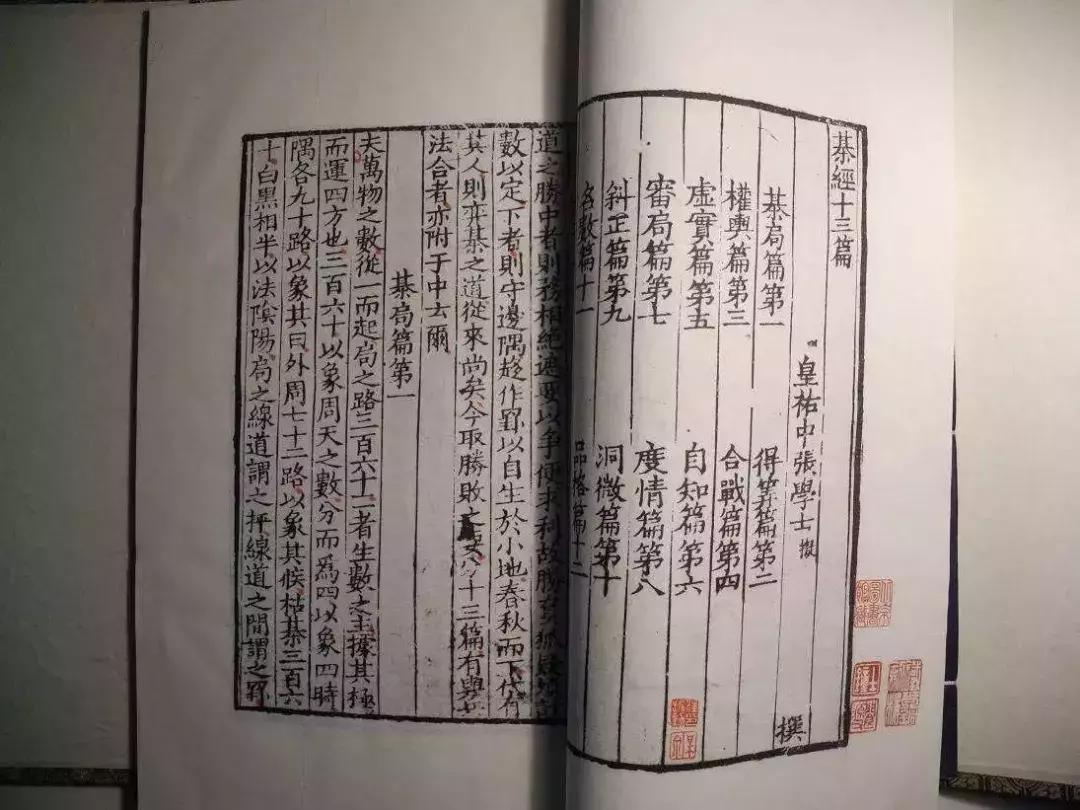 棊經十三篇
皇祐中張學士擬
撰
棊局篇第一 得筭篇第二
權輿篇第三 合戰篇第四
虛實篇第五 自知篇第六
審局篇第七 度情篇第八
斜正篇第九 洞微篇第十
名數篇十一 品格篇十二
道之勝中者則務相絶遮要以爭便求利故勝負狐疑
數以定下者則守邊隅趍作罫以自生於小地春秋而下代有
其人則弈棊之道從來尚矣今取勝敗之要分十三篇有與兵
法合者亦附于中云爾
棊局篇第一
夫萬物之數從一而起局之路三百六十一一者生數之主據其極
而運四方也三百六十以象周天之數分而為四以象四時
隅各九十路以象其日外周七十二路以象其候枯棊三百六
十白黑相半以法陰陽局之線道謂之枰線道之間謂之罫